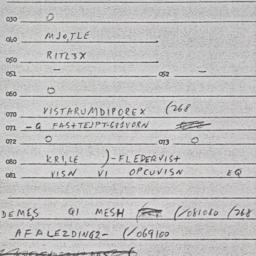 030 O
040 MJO,TLE
050 RITL3X
051 - 052 -
060 O
070 VISTARUMDIPOREX (268
071 -G
072 O 073 O
080 KRI,LE )-FLEDERVIST
081 VISN VI OPCUVISN EQ
DEMES GI MESH (/081080 (268
AFALEZDING2- (/069100